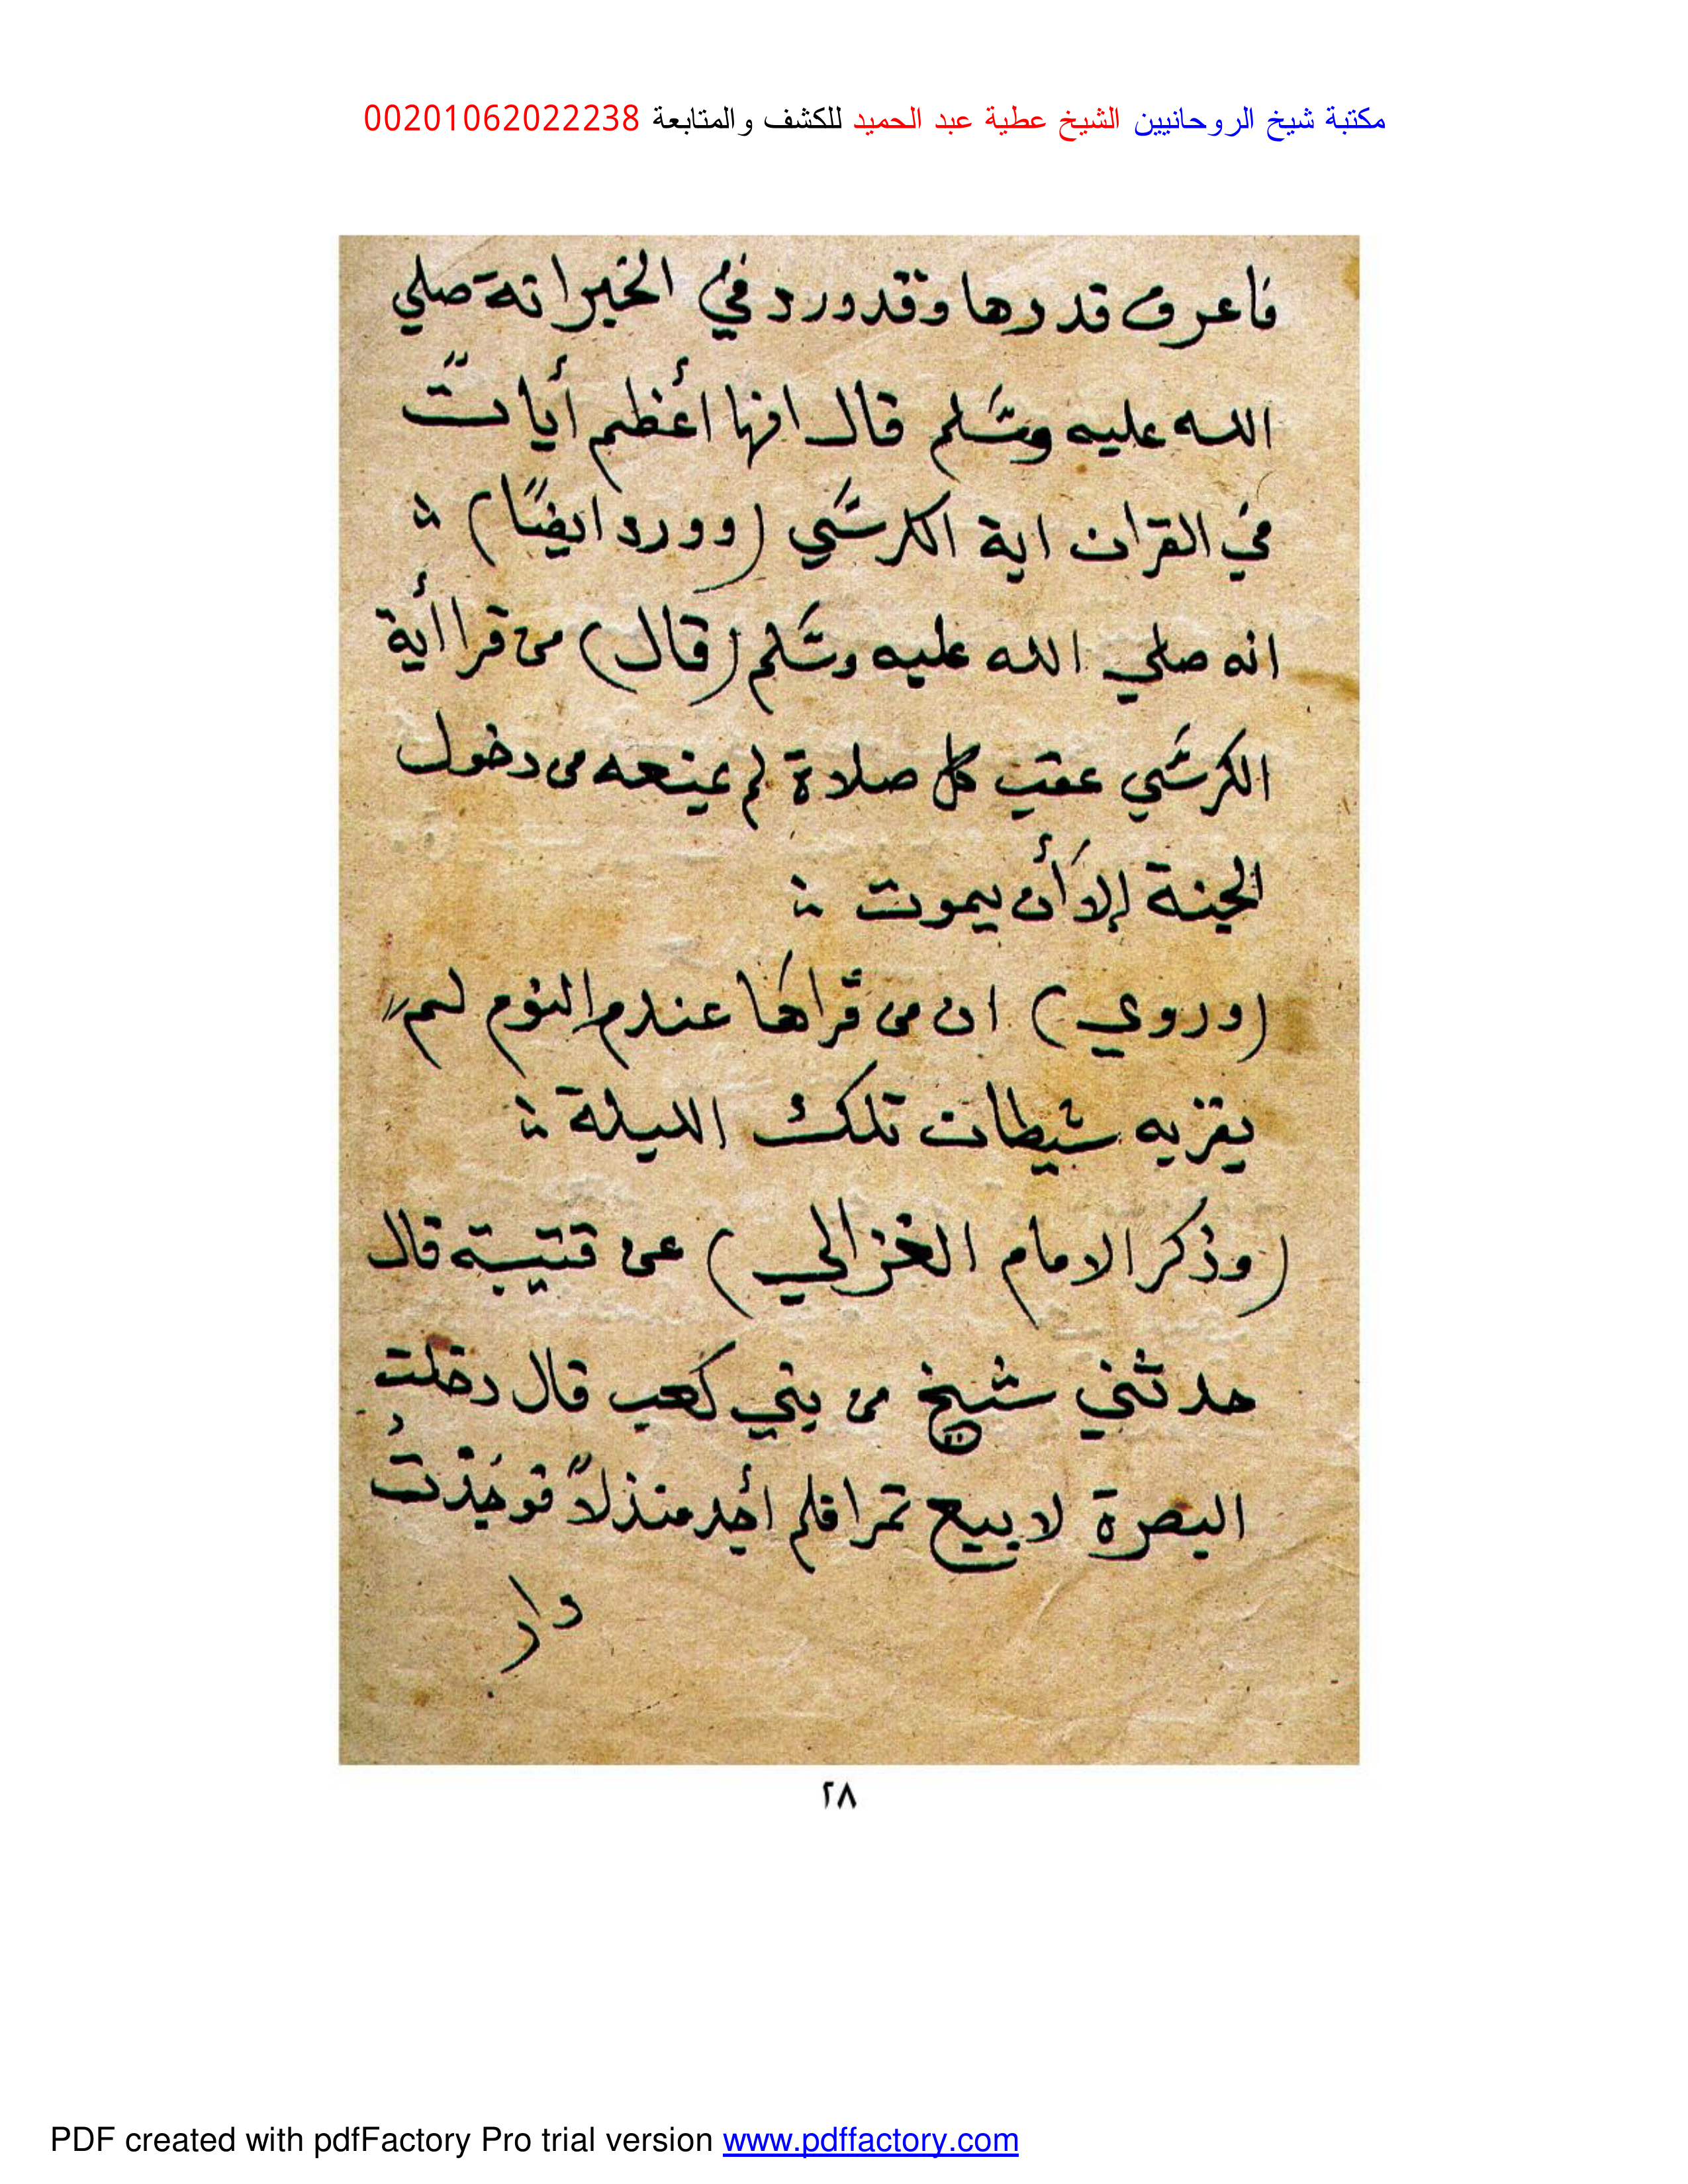 مكتبة شيخ الروحانيين الشيخ عطية عبد الحميد للكشف والمتابعة 00201062022238
فاعرف قدرها وقدورد في الخبر انه صلي
الله عليه وسلم قال انها أعظم أيات
في القران اية الكرسي (وورد ايضًا) ؞
انه صلي الله عليه وسلم (قال) من قرا أية
الكرسي عقب كل صلاة لم يمنعه من دخول
الجنة إلا أن يموت ؞
(وروي) ان من قراها عند النوم لم
يقربه شيطان تلك الليلة ؞
(وذكر الامام الغزالي) عن قتيبة قال
حدثني شيخ من بني كعب قال دخلت
البصرة لا بيع تمرا فلم أجد منذلاً فوجدت
دار
٢٨
PDF created with pdfFactory Pro trial version www.pdffactory.com